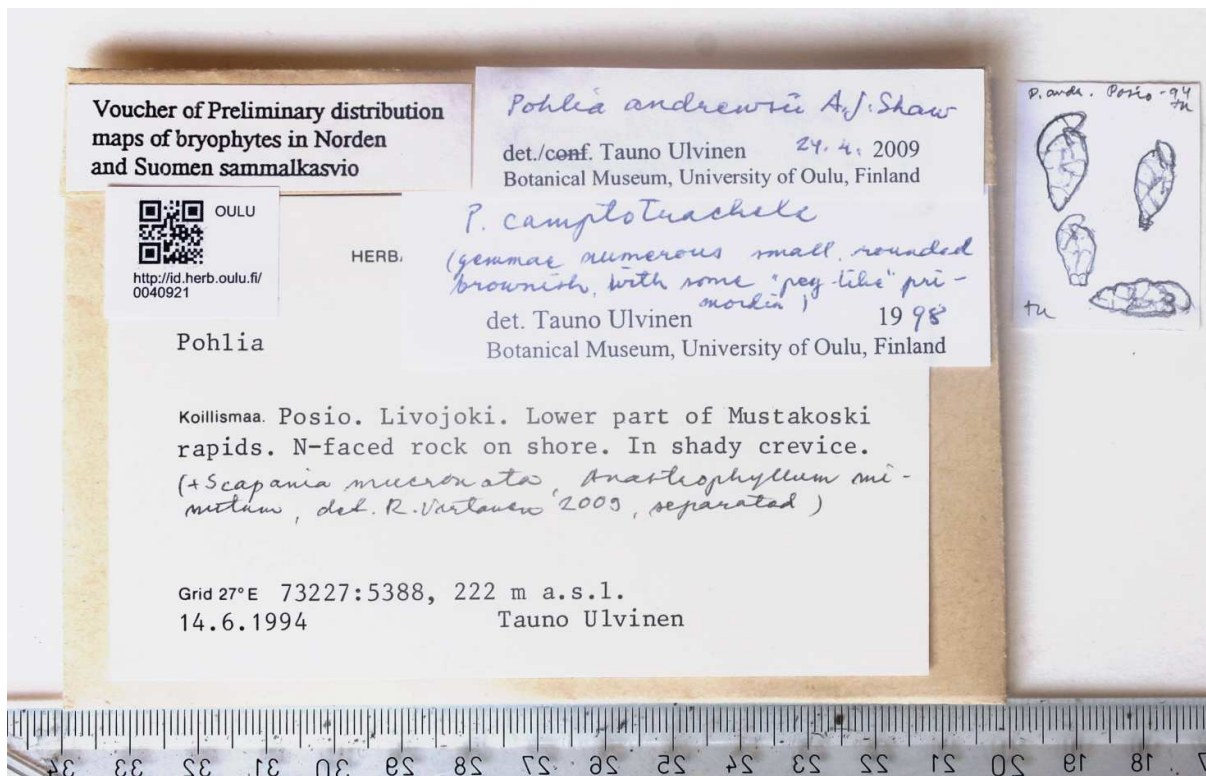 Voucher of Preliminary distribution
maps of bryophytes in Norden
and Suomen sammalkasvio
Pohlia andrewsii A.J. Shaw
det./conf. Tauno Ulvinen 24. 4. 2009
Botanical Museum, University of Oulu, Finland
P. andr. Posio -94
tu
OULU
http://id.herb.oulu.fi/
0040921
HERBA
P. camptotrachela
(gemmae numerous small, rounded
brownish, with some "peg-like" pri-
mordia)
det. Tauno Ulvinen 1998
Botanical Museum, University of Oulu, Finland
tu
Pohlia
Koillismaa. Posio. Livojoki. Lower part of Mustakoski
rapids. N-faced rock on shore. In shady crevice.
(+ Scapania mucronata, Anastrophyllum mi-
nutum, det. R. Virtanen 2009, separated)
Grid 27°E 73227:5388, 222 m a.s.l.
14.6.1994 Tauno Ulvinen
34 33 32 31 30 29 28 27 26 25 24 23 22 21 20 19 18 17